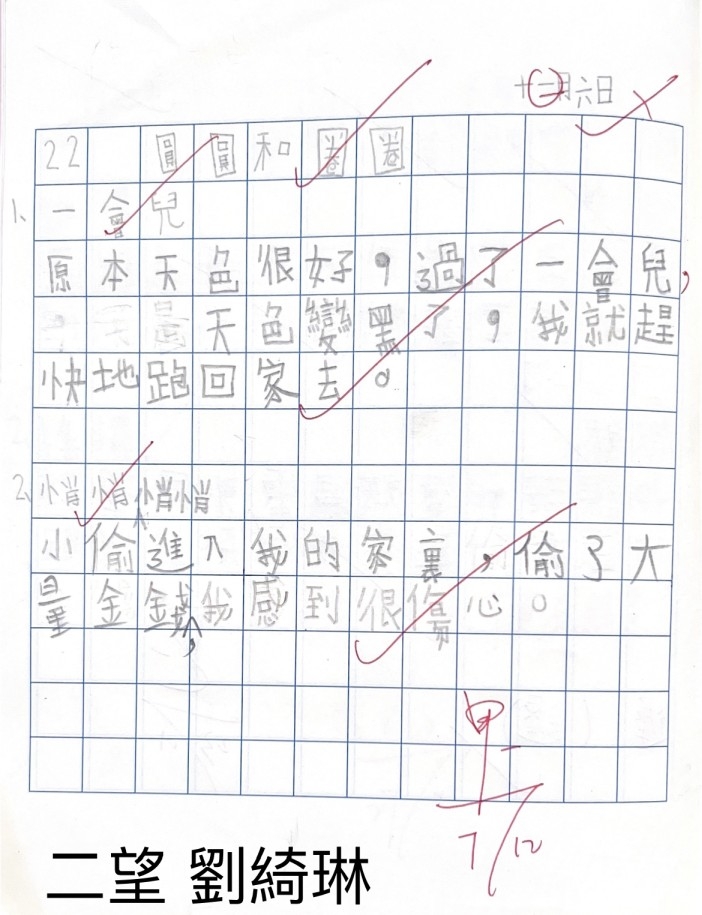 十二月六日
22 圓圓和圈圈
1、一會兒
原本天色很好，過了一會兒，
天色變黑了，我就趕
快地跑回家去。
2、悄悄
悄悄
小偷進入我的家裏，偷了大
量金錢，我感到很傷心。
7/12
二望 劉綺琳